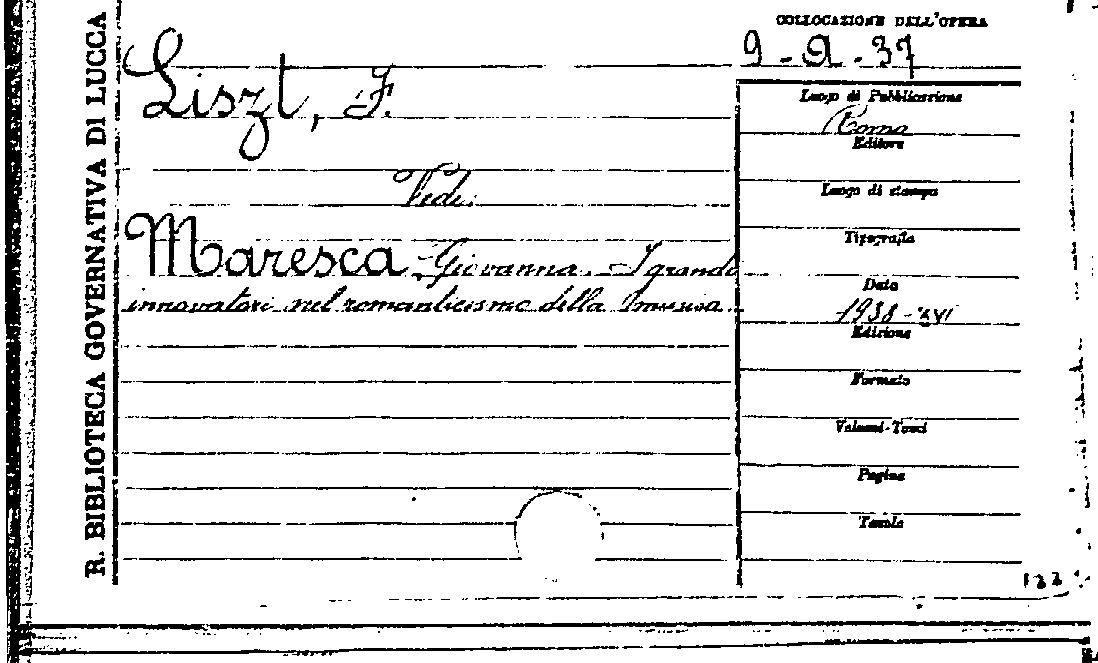 R. BIBLIOTECA GOVERNATIVA DI LUCCA
COLLOCAZIONE DELL'OPERA
9-A-37
Liszt, F.
Vedi:
Maresca Giovanna. I grandi
innovatori nel romanticismo della musica
Luogo di Pubblicazione
Roma
Editore
Luogo di stampa
Tipografia
Data
1938-XVI
Edizione
Formato
Volumi-Tomi
Pagine
Tavole